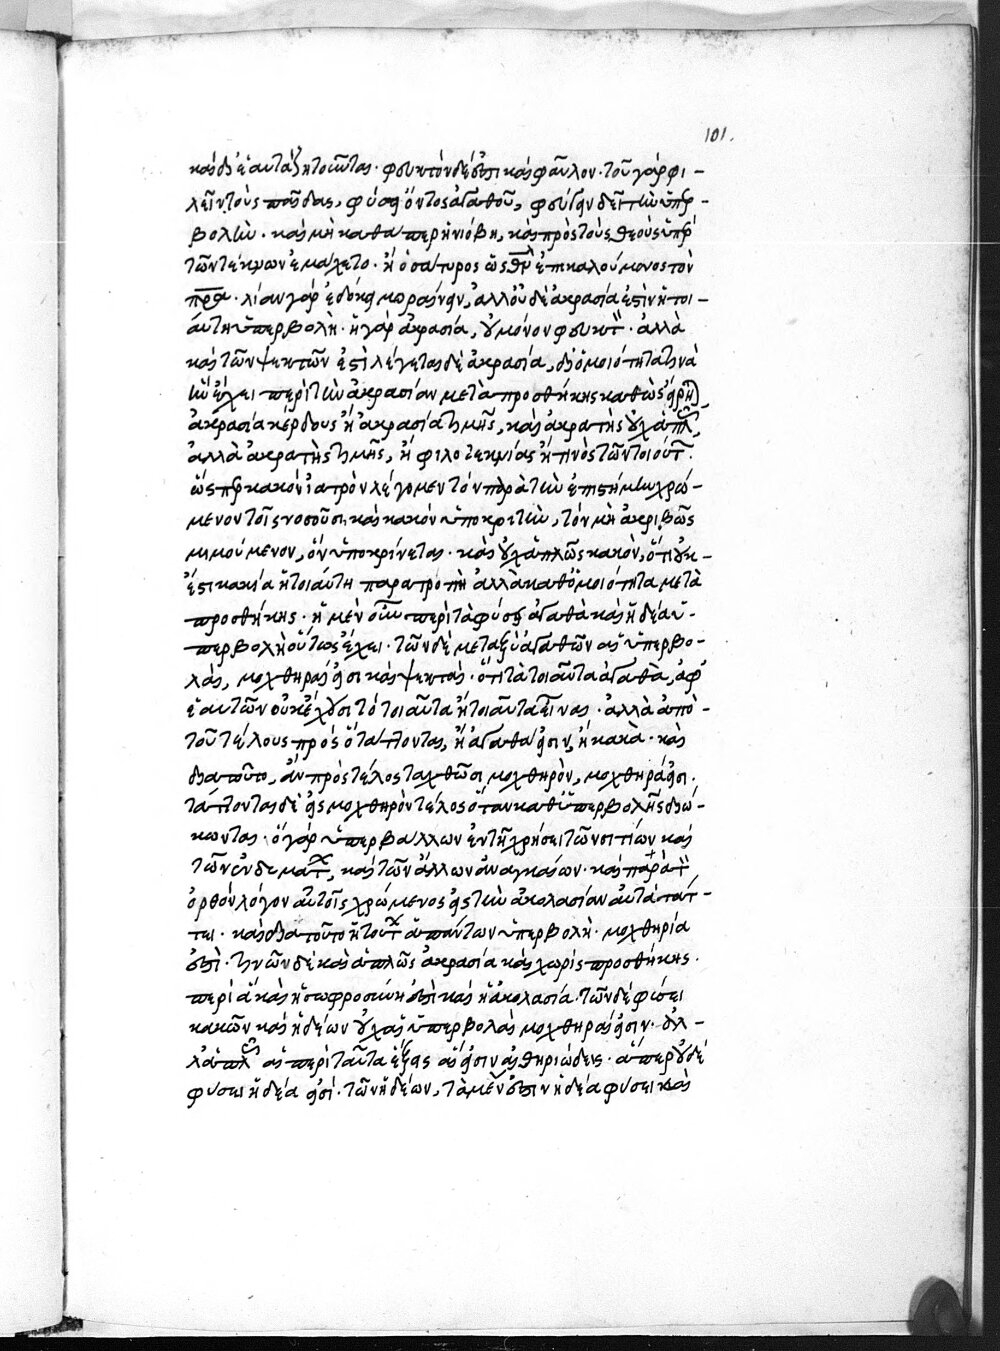 101.
καὶ δι' ἑαυτὰ ζητοῦνται· φευκτὸν δέ ἐστι καὶ φαῦλον· τοῦ γὰρ φι-
λεῖν τοὺς παῖδας, φύσει ὄντος ἀγαθοῦ, φεύγειν δεῖ τὴν ὑπερ-
βολὴν· καὶ μὴ καθάπερ ἡ νιόβη, καὶ πρὸς τοὺς θεοὺς ὑπὲρ
τῶν τέκνων ἐμάχετο· ἢ ὁ σάτυρος ὡς θν ἐπικαλούμενος τὸν
πρα· λίαν γὰρ ἐδόκει μωραίνειν, ἀλλ' οὐδὲ ἀκρασία ἐστὶν ἡ τοι-
αύτη ὑπερβολὴ· ἡ γὰρ ἀκρασία, οὐ μόνον φευκτ· ἀλλὰ
καὶ τῶν ψεκτῶν ἐστὶ λέγεται δὲ ἀκρασία, δι' ὁμοιότητα τινὰ
ἣν ἔχει περὶ τὴν ἀκρασίαν μετὰ προσθήκης καθὼς εἴρη
ἀκρασία κέρδους ἢ ἀκρασία τιμῆς, καὶ ἀκρατὴς οὐχ ἁπλ,
ἀλλὰ ἀκρατὴς τιμῆς, ἢ φιλοτεκνίας ἢ τινὸς τῶν τοιούτ.
ὥσπερ κακὸν ἰατρὸν λέγομεν τὸν παρὰ τὴν ἐπιστήμην χρώ-
μενον τοῖς νοσοῦσι, καὶ κακὸν ὑποκριτὴν, τὸν μὴ ἀκριβῶς
μιμούμενον, ὃν ὑποκρίνεται· καὶ οὐχ ἁπλῶς κακὸν, ὅτι οὐκ-
ἔστι κακία ἡ τοιαύτη παρατροπὴ ἀλλὰ καθ' ὁμοιότητα μετὰ
προσθήκης· ἡ μὲν οὖν περὶ τὰ φύσει ἀγαθὰ καὶ ἡδέα ὑ-
περβολὴ οὕτως ἔχει· τῶν δὲ μεταξὺ ἀγαθῶν αἱ ὑπερβο-
λαὶ, μοχθηραί εἰσι καὶ ψεκταὶ· ὅτι τὰ τοιαῦτα ἀγαθὰ, ἀφ'
ἑαυτῶν οὐκ ἔχουσι τὸ τοιαῦτα ἢ τοιαῦτα εἶναι· ἀλλὰ ἀπὸ-
τοῦ τέλους πρὸς ὃ τάττονται, ἢ ἀγαθά εἰσιν, ἢ κακὰ· καὶ
διατοῦτο, ἂν πρὸς τέλος ταχθῶσι μοχθηρὸν, μοχθηρά εἰσι.
τάττονται δὲ εἰς μοχθηρὸν τέλος ὅταν καθ' ὑπερβολῆς διώ-
κωνται· ὁ γὰρ ὑπερβάλλων ἐν τῇ χρήσει τῶν σιτίων καὶ
τῶν ἐνδυμάτ, καὶ τῶν ἄλλων ἀναγκαίων· καὶ παρὰ τ
ὀρθὸν λόγον αὐτοῖς χρώμενος εἰς τὴν ἀκολασίαν αὐτὰ τάτ-
τει· καὶ διατοῦτο ἡ τούτ ἁπάντων ὑπερβολὴ· μοχθηρία
ἐστὶ· τινῶν δὲ καὶ ἁπλῶς ἀκρασία καὶ χωρὶς προσθήκης.
περὶ ἃ καὶ ἡ σωφροσύνη ἐστὶ καὶ ἡ ἀκολασία· τῶν δὲ φύσει
κακῶν καὶ ἡδέων οὐχ αἱ ὑπερβολαὶ μοχθηραί εἰσιν· ἀλ-
λ' ἁπλ αἱ περὶ ταῦτα ἕξεις αἵ εἰσιν αἱ θηριώδεις· ἅπερ οὐδέ
φύσει ἡδέα εἰσί· τῶν ἡδέων, τὰ μέν ἐστιν ἡδέα φύσει καὶ